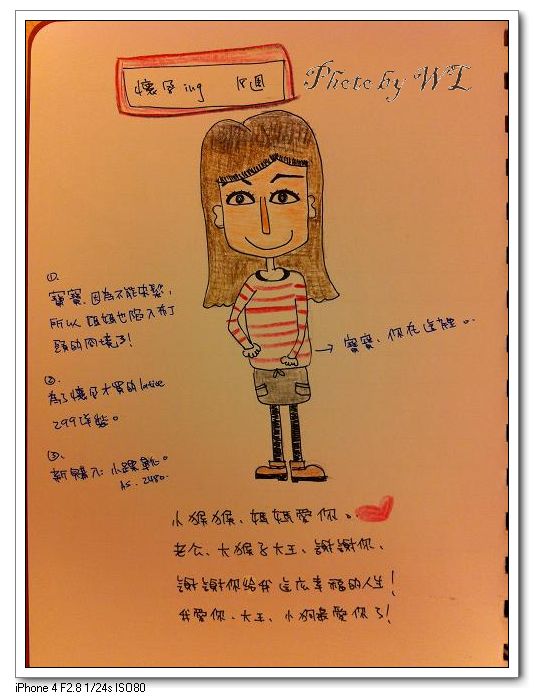 懷孕ing 18週
Photo by WL
①.
寶寶.因為不能染髮,
所以媽媽也陷入布丁
頭的困境了!
②.
為了懷孕才買的lativ
299洋裝。
③.
新購入:小踝靴。
AS. 2480.
→ 寶寶、你在這裡。
小猴猴、媽媽愛你。
老公、大猴子大王、謝謝你、
謝謝你給我這麼幸福的人生!
我愛你、大王、小狗最愛你了!
iPhone 4 F2.8 1/24s ISO80